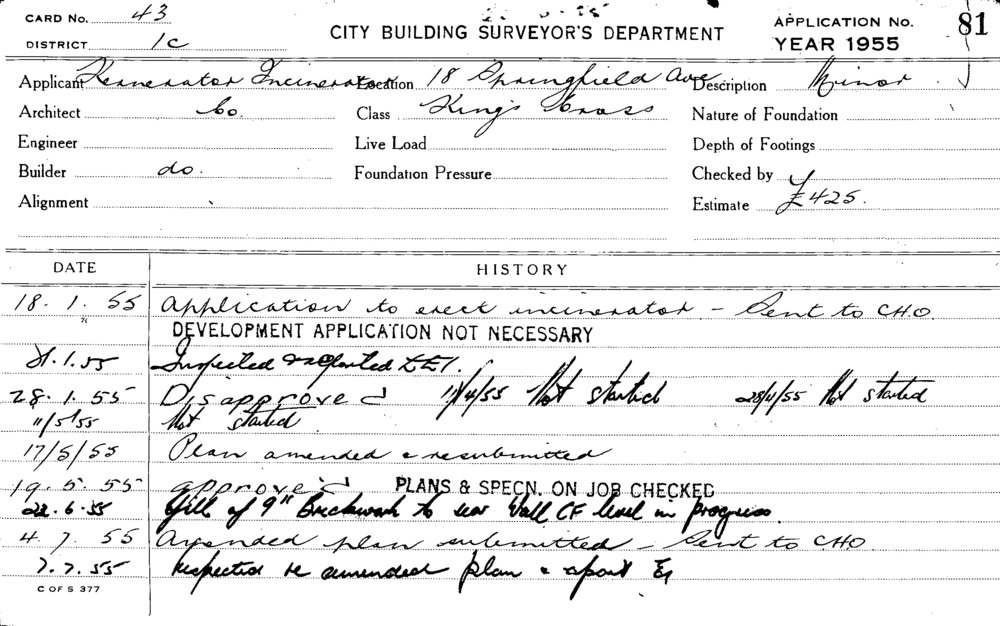 CARD No. 43
DISTRICT 1c
CITY BUILDING SURVEYOR'S DEPARTMENT
APPLICATION No. 81
YEAR 1955
Applicant Kernerator Incinerator Location 18 Springfield Ave Description Minor
Architect Co. Class Kings Cross Nature of Foundation
Engineer Live Load Depth of Footings
Builder do. Foundation Pressure Checked by
Alignment Estimate £425.
DATE HISTORY
18. 1. 55 Application to erect incinerator - Sent to CHO.
DEVELOPMENT APPLICATION NOT NECESSARY
21.1.55 Inspected &
28. 1. 55 Disapproved 11/4/55 Not started 28/4/55 Not started
11/5/55 Not started
17/5/55 Plan amended & resubmitted
19. 5. 55 approved PLANS & SPECN. ON JOB CHECKED
22.6.55 of 9" Brickwork to rear Wall level in progress
4. 7. 55 Amended plan submitted - Sent to CHO.
7.7.55 Inspected re amended plan &
C OF S 377